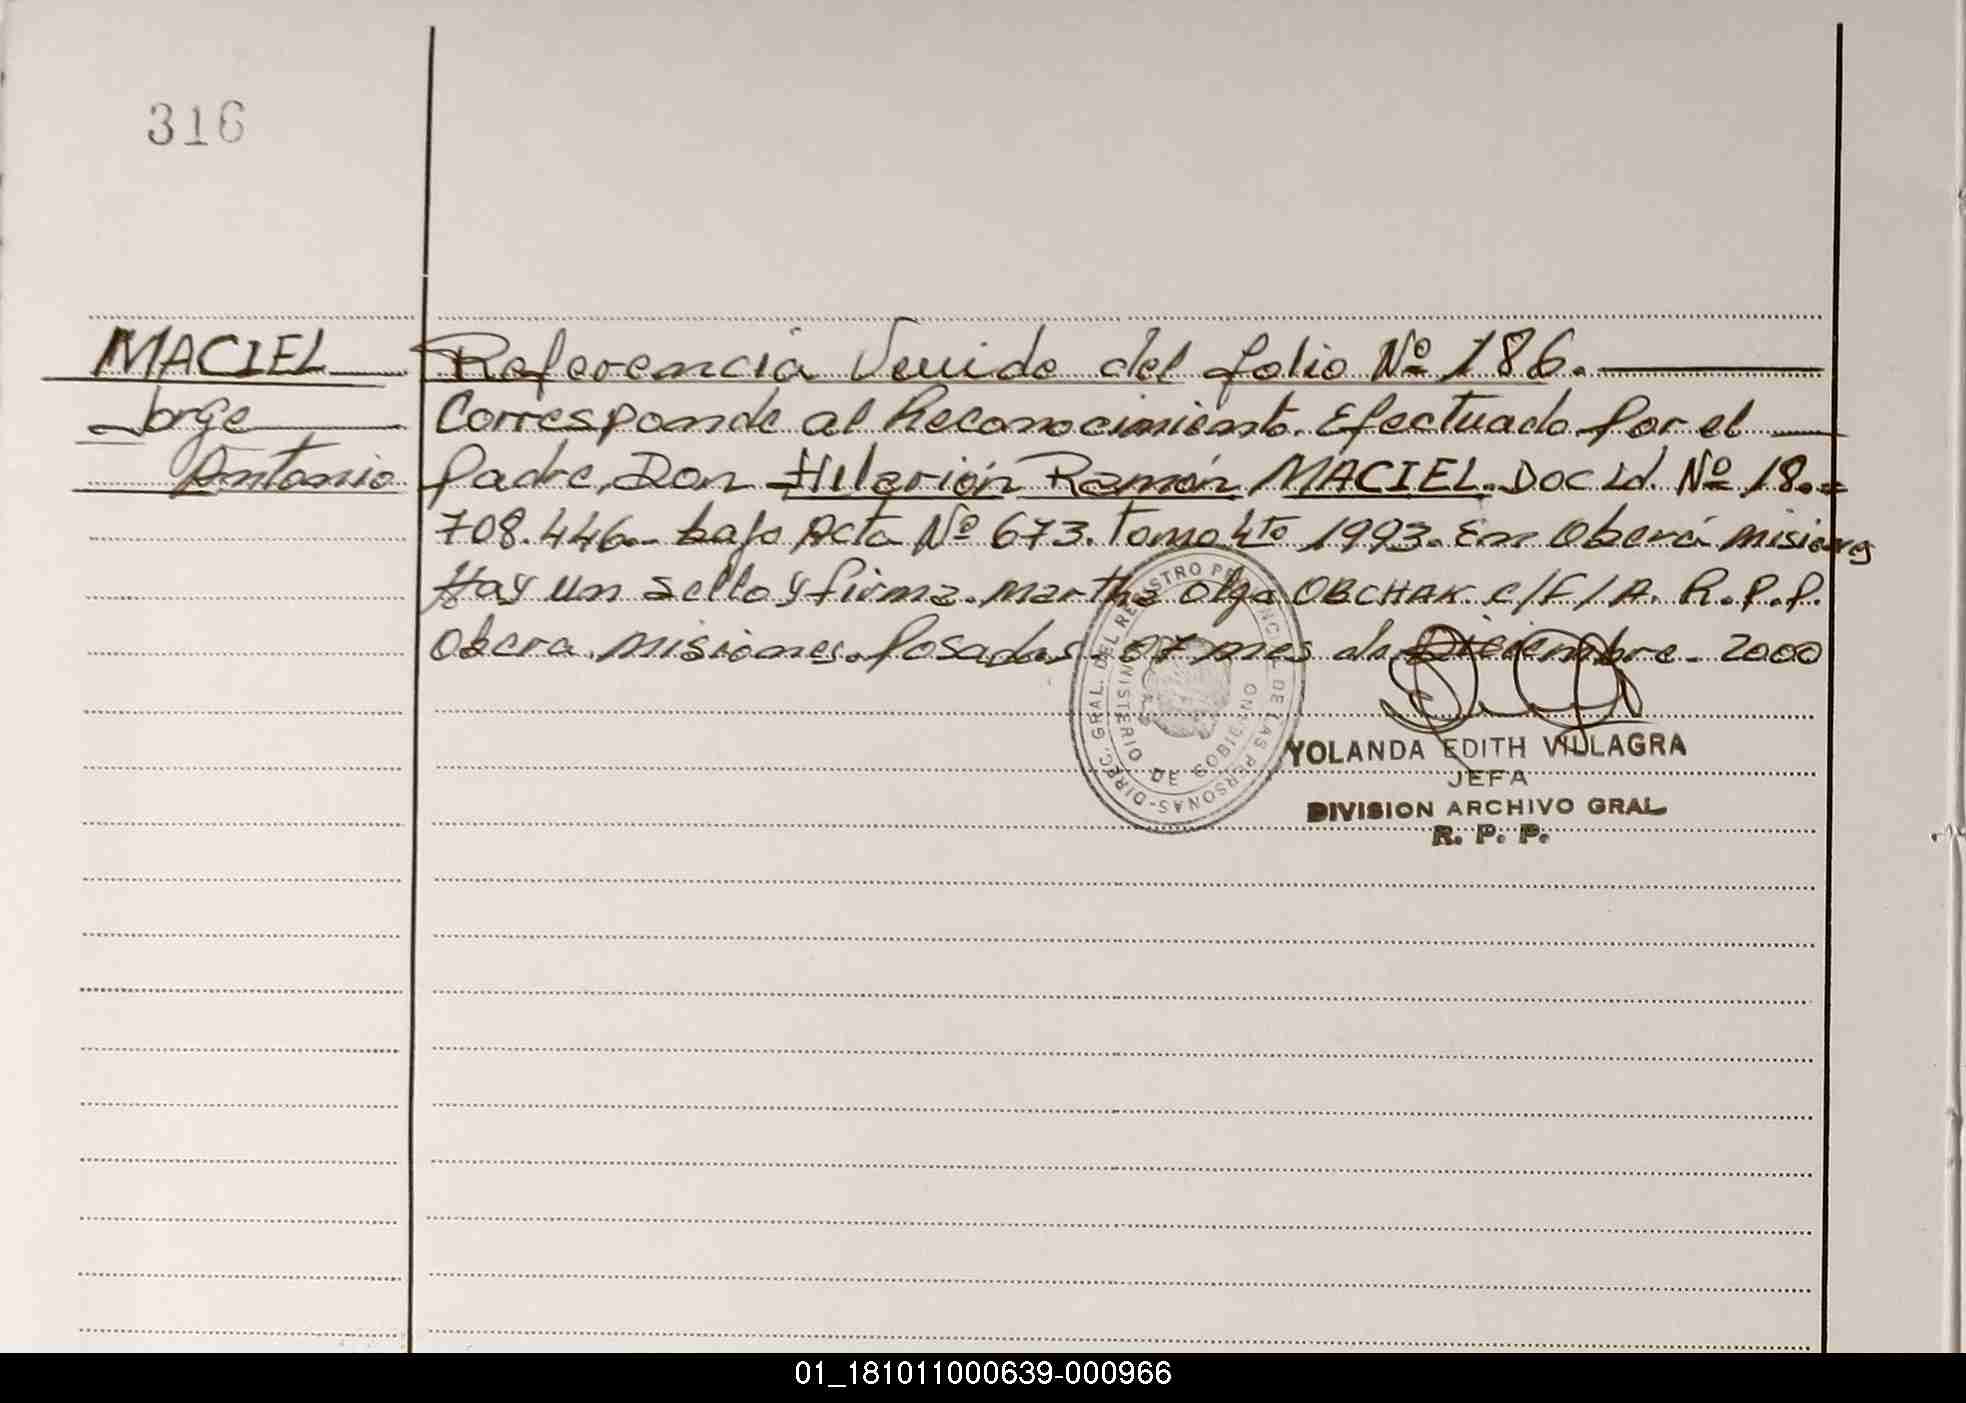 316
MACIEL
Jorge
Antonio
Referencia Venida del folio Nº 186.
Corresponde al Reconocimiento. Efectuado por el
padre, Don Hilarión Ramón MACIEL. Doc Ld. Nº 18.=
708.446.- bajo Acta Nº 673. Tomo 4to 1993. En Oberá Misiones
Hay un sello y firma. Martha Olga OBCHAK. e/F/A. R.P.P.
Obera. Misiones. Posadas. 07 mes de Diciembre. 2000
DIREC. GRAL. DEL REGISTRO PROVINCIAL DE LAS PERSONAS
MINISTERIO DE GOBIERNO
YOLANDA EDITH VILLAGRA
JEFA
DIVISION ARCHIVO GRAL
R. P. P.
01_181011000639-000966